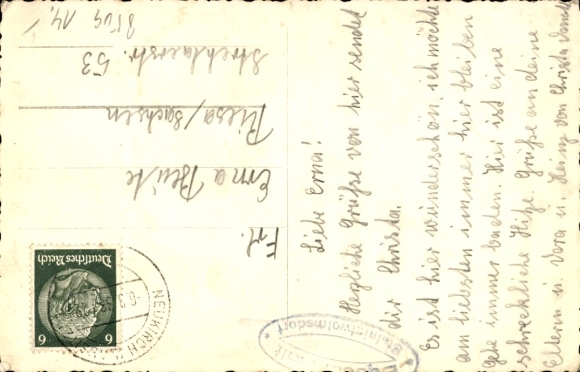 Liebe Erna!
Herzliche Grüße von hier sendet
dir Christa.
Es ist hier wunderschön, ich möchte
am liebsten immer hier bleiben
gute immer baden. Hier ist eine
schreckliche Hitze. Grüße an deine
Eltern u. Dora u. Heinz von Christa
Frl.
Erna
Riesa/Sachsen
Strehlaerstr. 53
Deutsches Reich
6 6
NEUKIRCH
Steinigtwolmsdorf